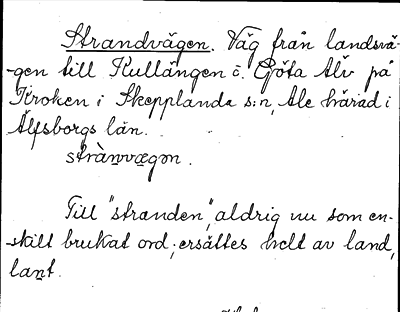 Strandvägen. Väg från landsvä-
-gen till Kullängen o. Göta Älv på
Kroken i Skepplanda s:n, Ale härad i
Älfsborgs län.
strànvægən.
Till "stranden", aldrig nu som en-
-skilt brukat ord; ersättes helt av land,
lant.